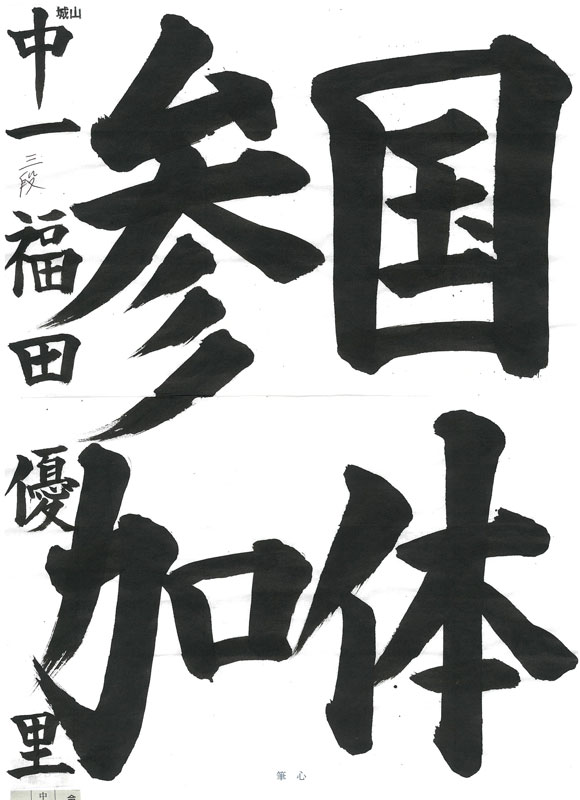 国体
参加
城山
中一 三段 福田 優里
筆心
中